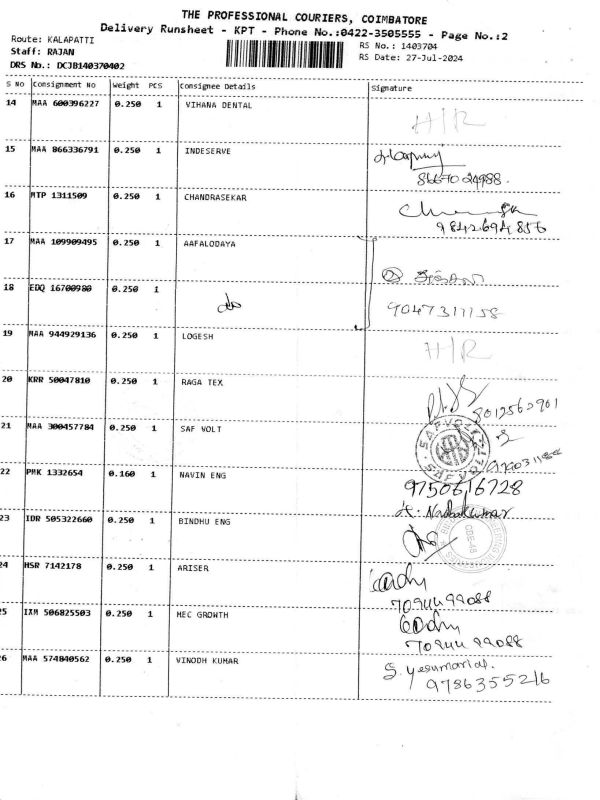 THE PROFESSIONAL COURIERS, COIMBATORE
Delivery Runsheet - KPT - Phone No.:0422-3505555 - Page No.:2
Route: KALAPATTI
RS No.: 1403704
Staff: RAJAN
RS Date: 27-Jul-2024
DRS No.: DCJB140370402
S NO Consignment No Weight PCS Consignee Details Signature
14 MAA 600396227 0.250 1 VIHANA DENTAL H/R
15 MAA 866336791 0.250 1 INDESERVE
8667024988.
16 MTP 1311509 0.250 1 CHANDRASEKAR
9842694856
17 MAA 109909495 0.250 1 AAFALODAYA
18 EDQ 16700980 0.250 1 do
9047311158
19 MAA 944929136 0.250 1 LOGESH H/R
20 KRR 50047810 0.250 1 RAGA TEX
8012562901
21 MAA 300457784 0.250 1 SAF VOLT
SAFVOLT
22 PMK 1332654 0.160 1 NAVIN ENG 9750616728
23 IDR 505322660 0.250 1 BINDHU ENG
24 HSR 7142178 0.250 1 ARISER
7094499088
25 IXM 506825503 0.250 1 MEC GROWTH
7094499088
26 MAA 574840562 0.250 1 VINODH KUMAR
9786355216